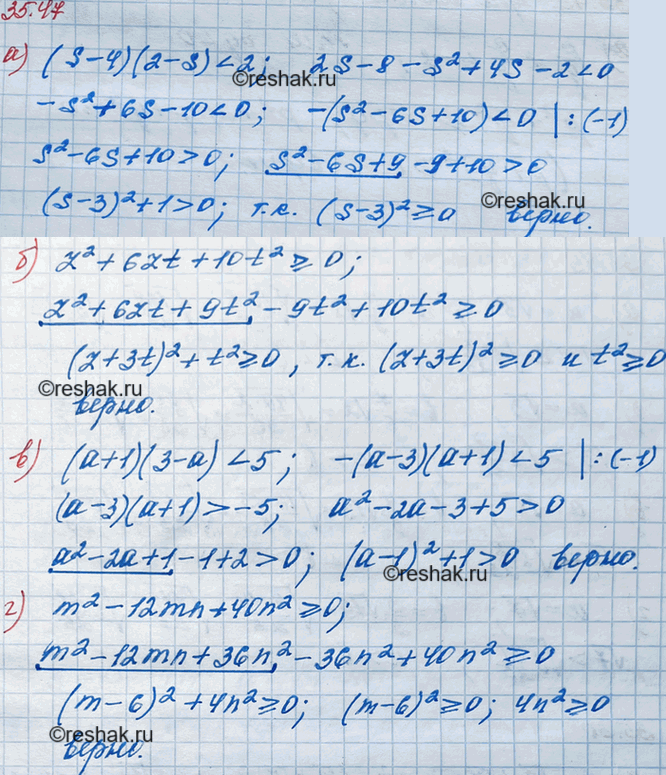 35.47
а) (s-4)(2-s)<2; 2s-8-s²+4s-2<0
©reshak.ru
-s²+6s-10<0; -(s²-6s+10)<0 |:(-1)
s²-6s+10>0; s²-6s+9-9+10>0
(s-3)²+1>0; т.к. (s-3)²≥0 верно.
©reshak.ru
б) z²+6zt+10t²≥0;
z²+6zt+9t²-9t²+10t²≥0
(z+3t)²+t²≥0, т.к. (z+3t)²≥0 и t²≥0
©reshak.ru
верно.
в) (a+1)(3-a)<5; -(a-3)(a+1)<5 |:(-1)
(a-3)(a+1)>-5; a²-2a-3+5>0
a²-2a+1-1+2>0; (a-1)²+1>0 верно.
©reshak.ru
г) m²-12mn+40n²≥0;
m²-12mn+36n²-36n²+40n²≥0
(m-6)²+4n²≥0; (m-6)²≥0; 4n²≥0
©reshak.ru
верно.